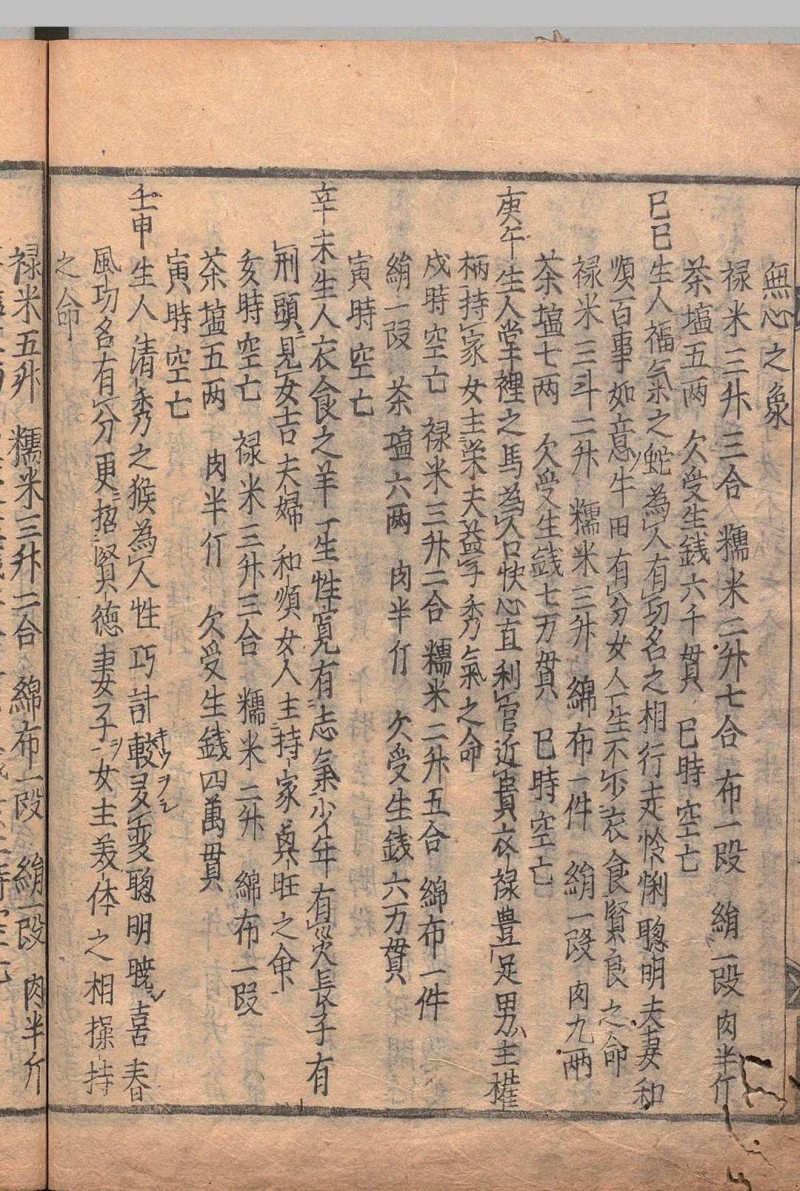 無心之象
禄米三升三合 糯米二升七合 布一段 絹一段 肉半斤
茶塩五两 欠受生銭六千貫 巳時空亡
己巳生人福氣之蛇為人有功名之相行走怜悧聰明夫妻和
順百事如意牛田有分女人一生不少衣食賢良之命
禄米三斗二升 糯米三升 綿布一件 絹一段 肉九两
茶塩七两 欠受生銭七万貫 巳時空亡
庚午生人堂裡之馬為人口快心直利官近貴衣禄豊足男主權
柄持家女主栄夫益子秀氣之命
戌時空亡 禄米三升二合 糯米二升五合 綿布一件
絹一段 茶塩六两 肉半斤 欠受生銭六万貫
寅時空亡
辛未生人衣食之羊一生性寛有志氣少年有災長子有
刑頭見女吉夫婦和順女人主持家興旺之命
亥時空亡 禄米三升三合 糯米二升 綿布一段
茶塩五两 肉半斤 欠受生銭四萬貫
寅時空亡
壬申生人清秀之猴為人性巧計較キウヲシ多変聰明暁喜春
風功名有分更招賢徳妻子ヲ女主美体之相操持
之命
禄米五升 糯米三升二合 綿布一段 絹一段 肉半斤